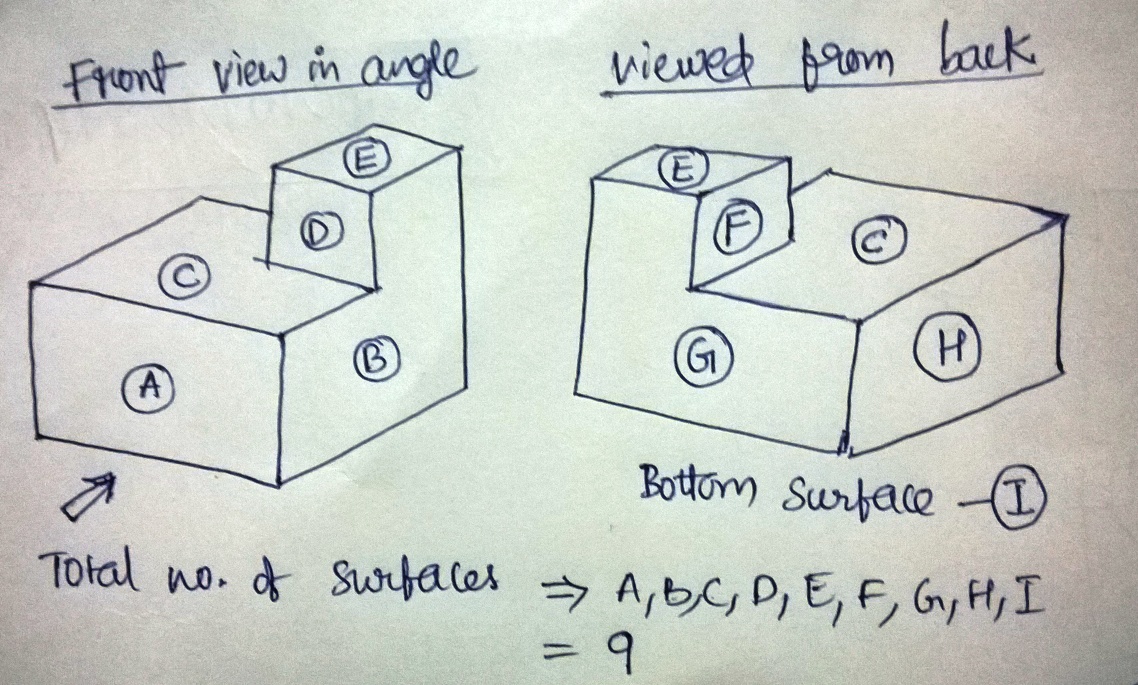 Front view in angle
viewed from back
E
D
C
B
A
E
F
C
G
H
Bottom surface - I
Total no. of surfaces ⇒ A, B, C, D, E, F, G, H, I
= 9